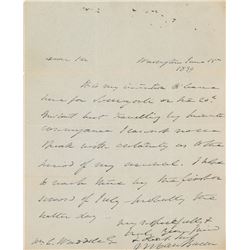 Dear Sir
Washington June
183
It is my intention to leave
here for New York on the 20th
Instant but travelling by private
conveyance I cannot now
speak with certainty as to the
period of my arrival. I hope
to reach there by the first or
second of July probably the
latter day.
very respectfully &
truly your friend
M Van Buren